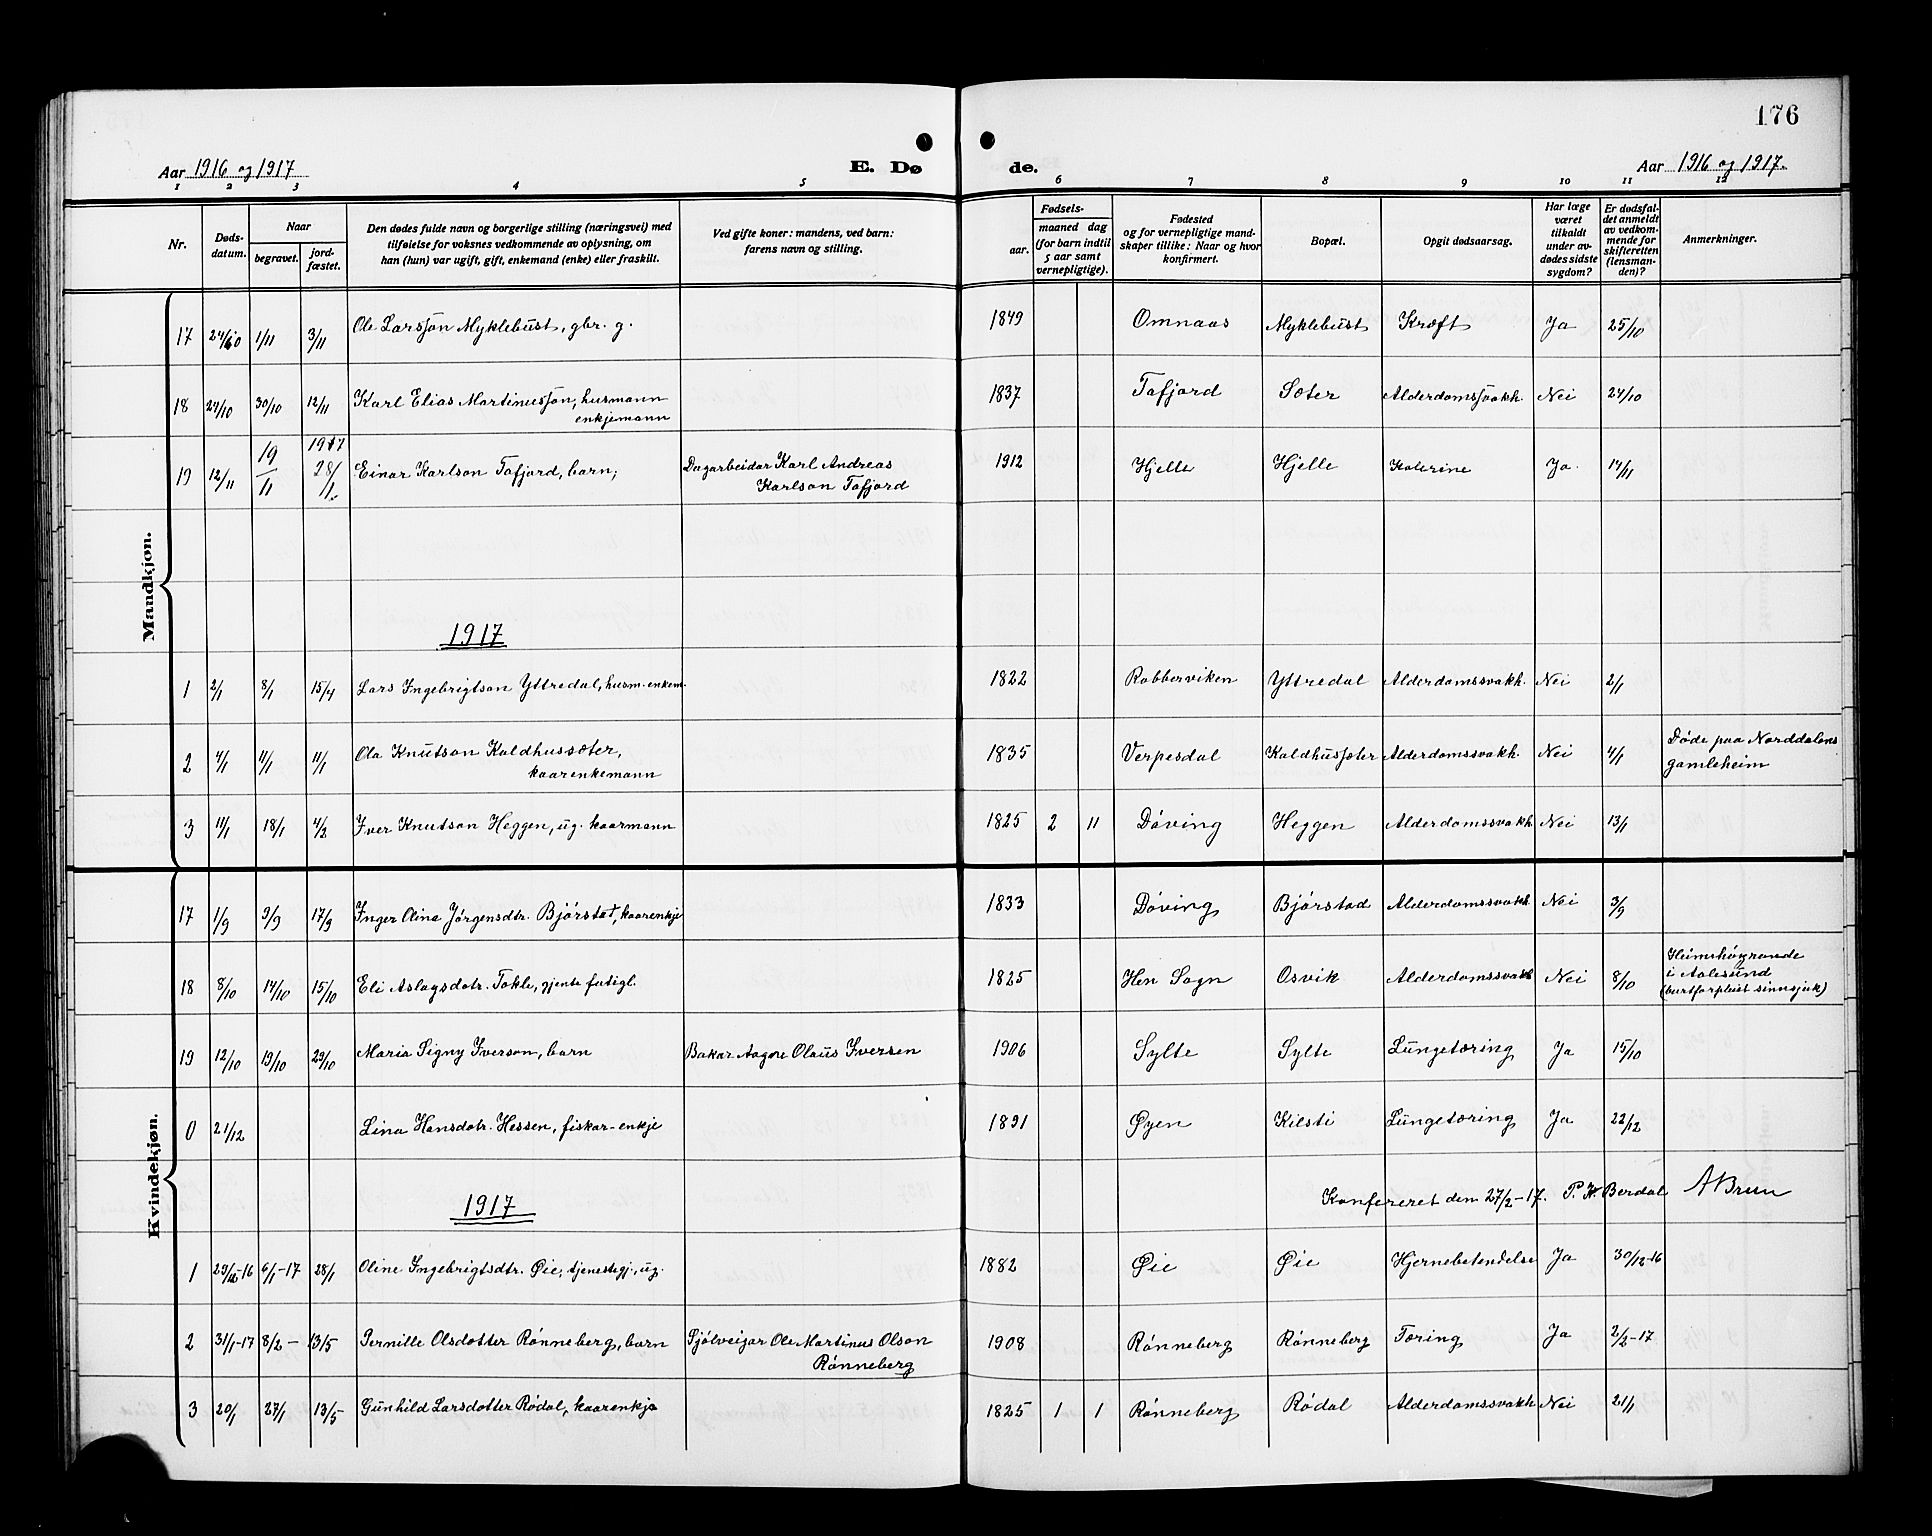 176
Aar 1916 og 1917
E. Dø
de.
Aar 1916 og 1917.
1 2 3 4 5 6 7 8 9 10 11 12
Nr.
Døds-
datum.
Naar
begravet.
jord-
fæstet.
Den dødes fulde navn og borgerlige stilling (næringsvei) med
tilføielse for voksnes vedkommende av oplysning, om
han (hun) var ugift, gift, enkemand (enke) eller fraskilt.
Ved gifte koner: mandens, ved barn:
farens navn og stilling.
Fødsels-
aar.
maaned dag
(for barn indtil
5 aar samt
vernepligtige).
Fødested
og for vernepligtige mand-
skaper tillike: Naar og hvor
konfirmert.
Bopæl.
Opgit dødsaarsag.
Har læge
været
tilkaldt
under av-
dødes sidste
sygdom?
Er dødsfal-
det anmeldt
av vedkom-
mende for
skifteretten
(lensman-
den)?
Anmerkninger.
Mandkjøn.
17 24/10 1/11 3/11 Ole Larssøn Myklebust, gbr. g. 1849 Omnaas Myklebust Kræft Ja 25/10
18 24/10 30/10 12/11 Karl Elias Martinussøn, husmann
enkjemann
1837 Tafjord Sæter Alderdomssvakh. Nei 24/10
19 12/11 19/11 1917 28/1. Einar Karlson Tafjord, barn, Dagarbeidar Karl Andreas
Karlson Tafjord
1912 Hjelle Hjelle Katerine Ja. 14/11
1917
1 2/1 8/1 15/4 Lars Ingebrigtson Yttredal, husm. enkem. 1822 Robberviken Yttredal Alderdomssvakh. Nei 2/1
2 4/1 11/1 11/1 Ola Knutson Kaldhussæter,
kaarenkemann
1835 Verpesdal Kaldhussæter Alderdomssvakh. Nei 4/1 Døde paa Norddalens
gamleheim
3 11/1 18/1 4/2 Iver Knutson Heggen, ug. kaarmann 1825 2 11 Døving Heggen Alderdomssvakh Nei 13/1
Kvindekjøn.
17 1/9 9/9 17/9 Inger Olina Jørgensdtr. Bjørstad, kaarenkje 1833 Døving Bjørstad Alderdomssvakh Nei 3/9
18 8/10 14/10 15/10 Eli Aslagsdotr. Tokle, gjente fatigl. 1825 Hen Sogn Osvik Alderdomssvakh Nei 8/10 Heimehøyrande
i Aalesund
(burtforpleiet sinnsjuk)
19 12/10 19/10 29/10 Maria Signy Iverson, barn Bakar Aagore Olaus Iversen 1906 Sylte Sylte Lungetæring Ja 15/10
0 21/12 Lina Hansdotr. Hessen, fiskar-enkje 1891 Øyen Kilsti Lungetæring Ja 22/12
Konfereret den 27/2-17. P. K. Berdal A Bruun
1917
1 29/12-16 6/1-17 28/1 Oline Ingebrigtsdtr. Øie, tjenestegj., ug. 1882 Øie Øie Hjernebetendelse Ja 30/12-16
2 31/1-17 8/2- 13/5 Pernille Olsdotter Rønneberg, barn Sjølveigar Ole Martinus Olson
Rønneberg
1908 Rønneberg Rønneberg Tæring Ja 2/2-17
3 20/1 27/1 13/5 Gunhild Larsdotter Rødal, kaarenkje 1825 1 1 Rønneberg Rødal Alderdomssvakh Nei 21/1